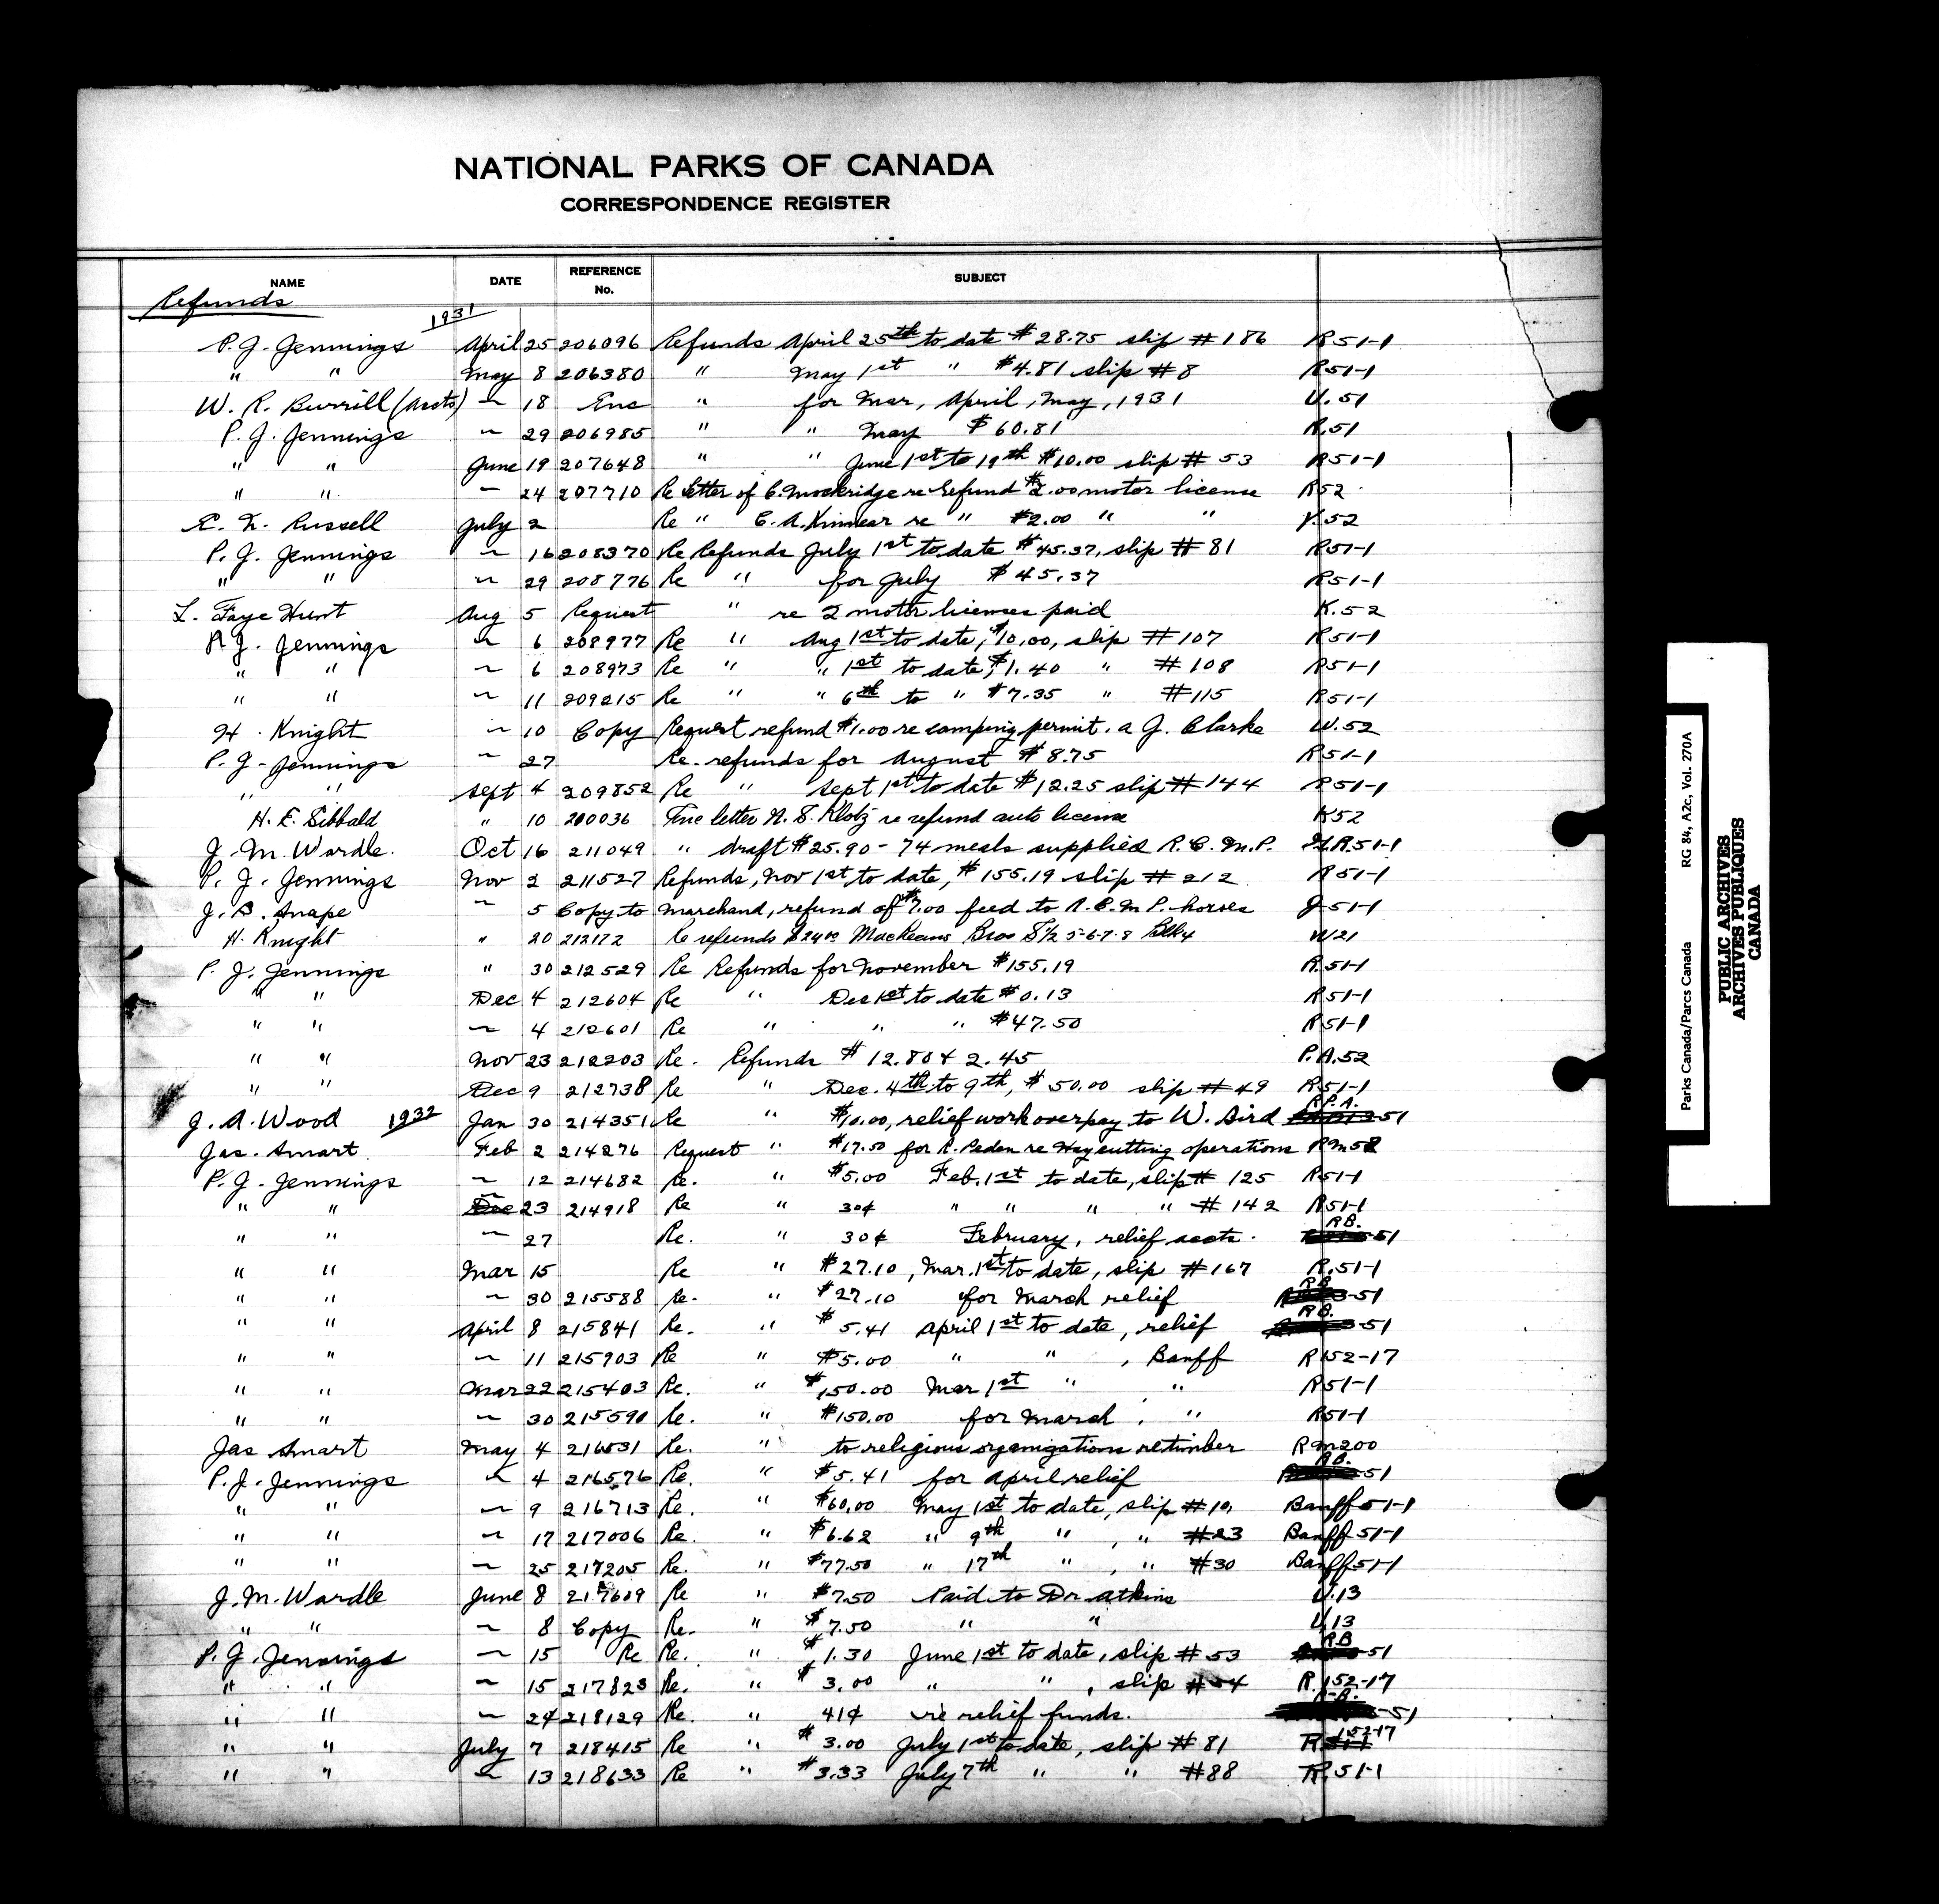 NATIONAL PARKS OF CANADA
CORRESPONDENCE REGISTER
NAME DATE REFERENCE No. SUBJECT
Refunds
1931
P. J. Jennings April 25 206096 Refunds April 25th to date $28.75 slip #186 R51-1
" " May 8 206380 " May 1st " $4.81 slip #8 R51-1
W. R. Burrill (Accts) ~ 18 Enc " for Mar, April, May, 1931 U.51
P. J. Jennings ~ 29 206985 " " May $60.81 R.51
" " June 19 207648 " " June 1st to 19th $10.00 slip #53 R51-1
" " ~ 24 207710 Re letter of C. Mockridge re refund $2.00 motor license R52
E. N. Russell July 2 Re " C. A. Kinnear re " $2.00 " " Y.52
P. J. Jennings ~ 16 208370 Re Refunds July 1st to date $45.37, slip #81 R51-1
" " ~ 29 208776 Re " for July $45.37 R51-1
L. Faye Hunt Aug 5 Request " re 2 motor licenses paid K.52
P. J. Jennings ~ 6 208977 Re " Aug 1st to date, $10.00, slip #107 R51-1
" " ~ 6 208973 Re " " 1st to date, $1.40 " #108 R51-1
" " ~ 11 209215 Re " " 6th to " $7.35 " #115 R51-1
H. Knight ~ 10 Copy Request refund $1.00 re camping permit. A J. Clarke W.52
P. J. Jennings ~ 27 Re. refunds for August $8.75 R51-1
" " Sept 4 209852 Re " Sept 1st to date $12.25 slip #144 R51-1
H. E. Sibbald " 10 210036 Enc letter N. S. Klotz re refund auto license K52
J. M. Wardle. Oct 16 211049 " draft $25.90 - 74 meals supplied R.C.M.P. R51-1
P. J. Jennings Nov 2 211527 Refunds, Nov 1st to date, $155.19 slip #212 R51-1
J. B. Snape ~ 5 Copy to Marchand, refund of $7.00 feed to R.C.M.P. horses J-51-1
H. Knight " 20 212172 Re refunds $24.00 MacKeans Bros S½ 5-6-7-8 Blk4 W21
P. J. Jennings " 30 212529 Re Refunds for November $155.19 R.51-1
" " Dec 4 212604 Re " Dec 1st to date $0.13 R51-1
" " ~ 4 212601 Re " " " $47.50 R51-1
" " Nov 23 212203 Re. Refunds $12.80 & 2.45 P.A.52
" " Dec 9 212738 Re " Dec. 4th to 9th, $50.00 slip #49 R51-1
J. A. Wood 1932 Jan 30 214351 Re " $10.00, relief work overpay to W. Bird R.P.A. 51
Jas. Smart Feb 2 214276 Request " $17.50 for R. Peden re Hay cutting operations RM52
P. J. Jennings ~ 12 214682 Re. " $5.00 Feb. 1st to date, slip #125 R51-1
" " Dec ~ 23 214918 Re " 30¢ " " " " #142 R51-1
" " ~ 27 Re. " 30¢ February, relief accts. RB. 51
" " Mar 15 Re " $27.10, Mar. 1st to date, slip #167 R.51-1
" " ~ 30 215588 Re. " $27.10 for March relief RB 3-51
" " April 8 215841 Re. " $5.41 April 1st to date, relief RB. 51
" " ~ 11 215903 Re " $5.00 " " , Banff R152-17
" " Mar 22 215403 Re. " $150.00 Mar 1st " " R51-1
" " ~ 30 215591 Re. " $150.00 for March, " R51-1
Jas Smart May 4 216531 Re. " to religious organizations re timber RM200
P. J. Jennings ~ 4 216576 Re. " $5.41 for April relief RB. 51
" " ~ 9 216713 Re. " $60.00 May 1st to date, slip #10, Banff 51-1
" " ~ 17 217006 Re. " $6.62 " 9th " , " #23 Banff 51-1
" " ~ 25 217205 Re. " $77.50 " 17th " , " #30 Banff 51-1
J. M. Wardle June 8 217609 Re " $7.50 Paid to Dr Atkins U.13
" " ~ 8 Copy Re. " $7.50 " " U.13
P. J. Jennings ~ 15 Re Re. " $1.30 June 1st to date, slip #53 RB 51
" " ~ 15 217823 Re. " $3.00 " " , slip #54 R.152-17
" " ~ 24 218129 Re. " 41¢ re relief funds. R.B. 51
" " July 7 218415 Re " $3.00 July 1st to date, slip #81 R 51-1 152-17
" " ~ 13 218633 Re " $3.33 July 7th " " #88 R.51-1
Parks Canada/Parcs Canada RG 84, A2c, Vol. 270A
PUBLIC ARCHIVES
ARCHIVES PUBLIQUES
CANADA